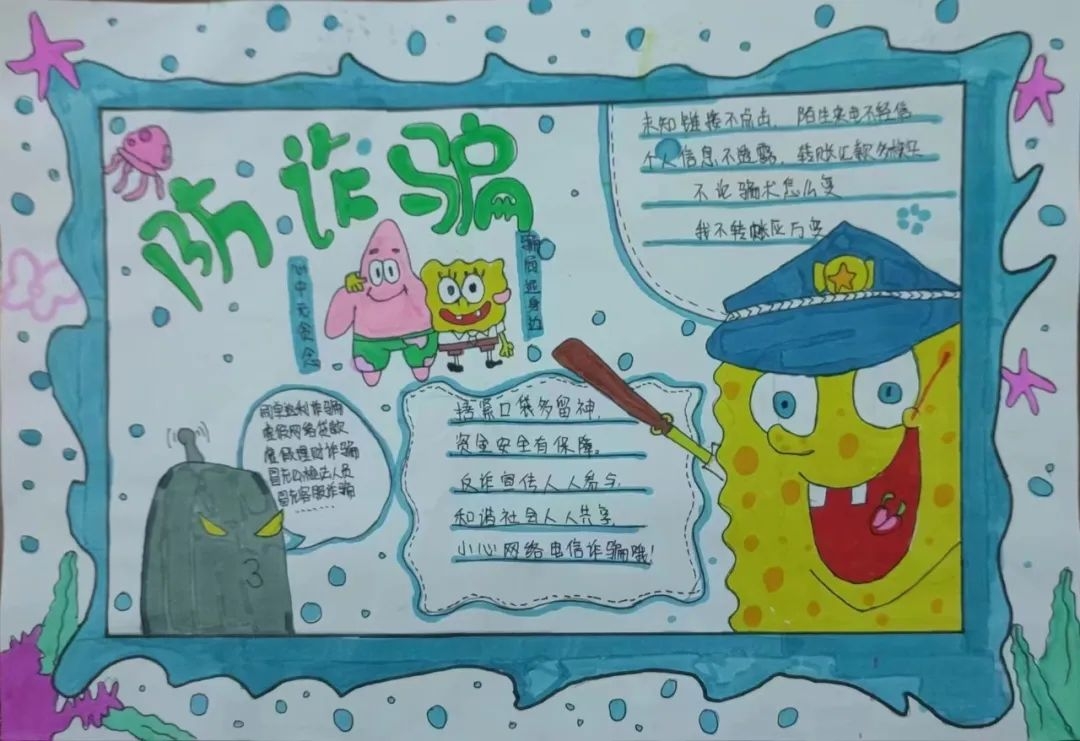 防诈骗
心中无贪念
骗局远身边
未知链接不点击，陌生来电不轻信
个人信息不透露，转账汇款多核实
不论骗术怎么变
我不转账应万变
捂紧口袋多留神，
资金安全有保障。
反诈宣传人人参与，
和谐社会人人共享，
小心网络电信诈骗哦！
网络贷款
虚假理财诈骗
冒充公检法人员
冒充客服诈骗
……
3